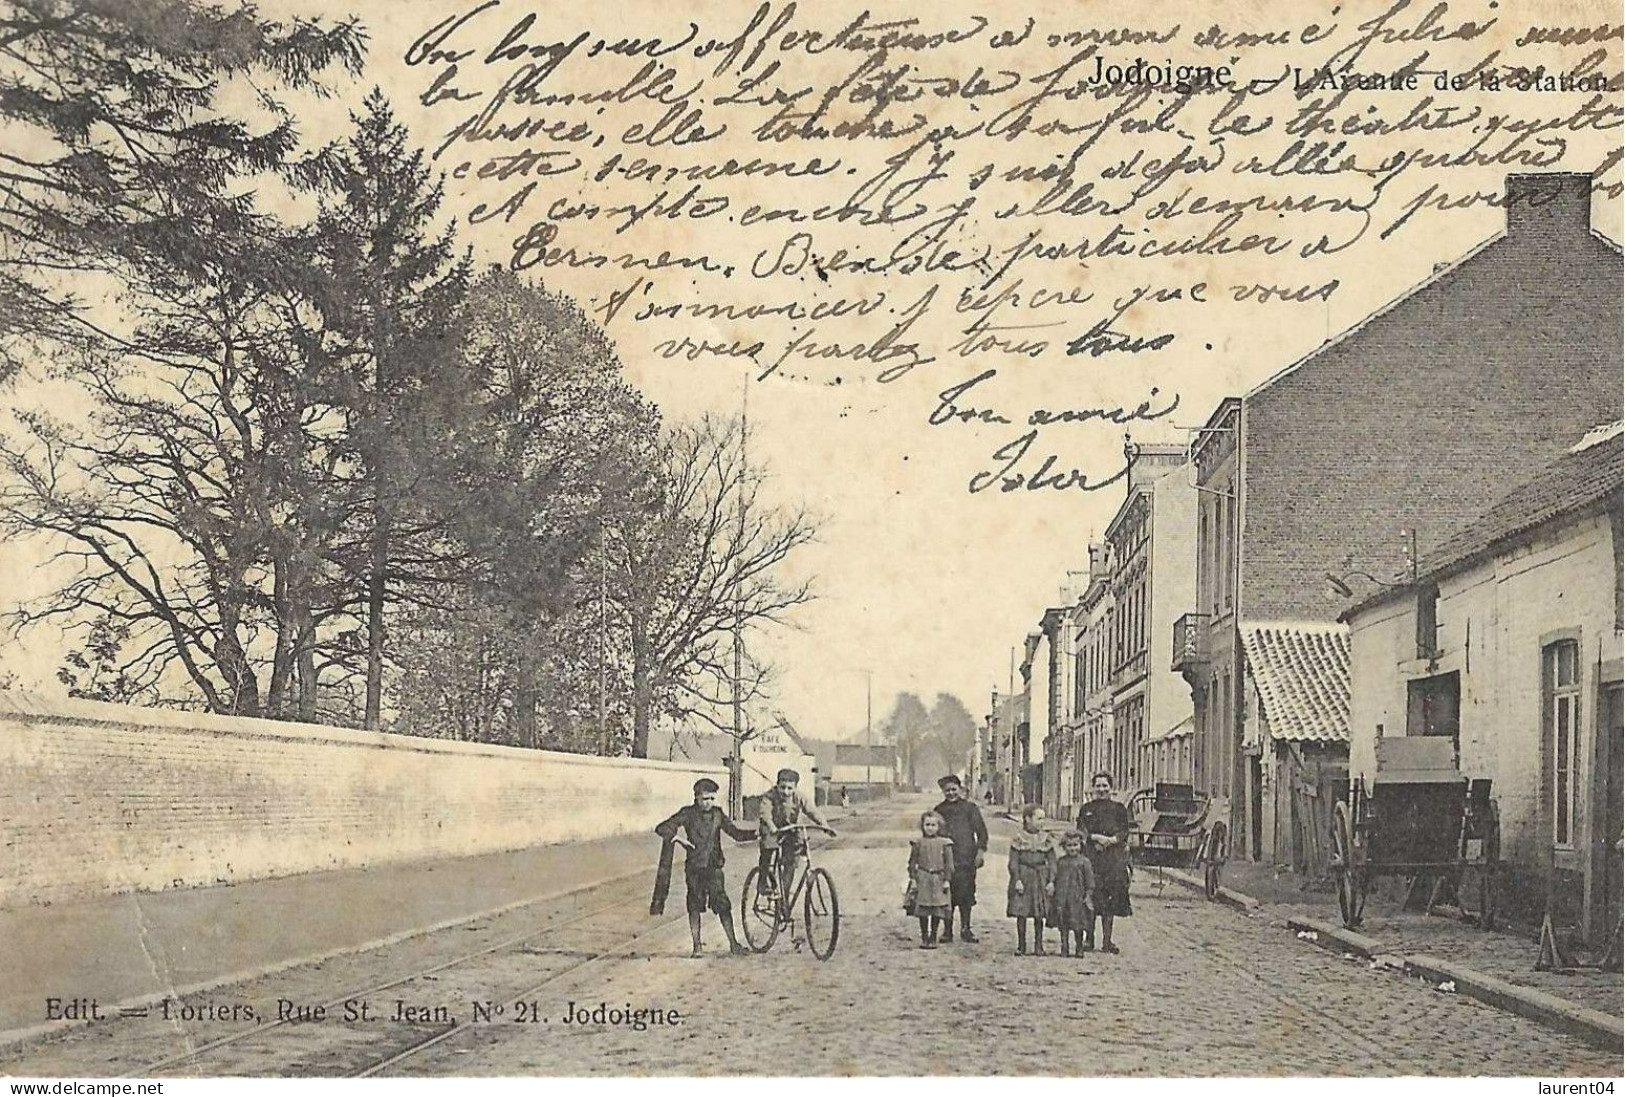 Un bonjour affectueux a mon amie Julie
la famille. La fête de Jodoigne
passée, elle touche à sa fin. le théâtre quitte
cette semaine. J'y suis déjà allée quatre
et compte encore y aller demain pour
Bien de particulier a
t'annoncer. J'espère que vous
vous portez tous tous.
Ton amie
Jodoigne — L'Avenue de la Station
CAFÉ
Edit. = Loriers, Rue St. Jean, Nº 21. Jodoigne.
delcampe.net
laurent04